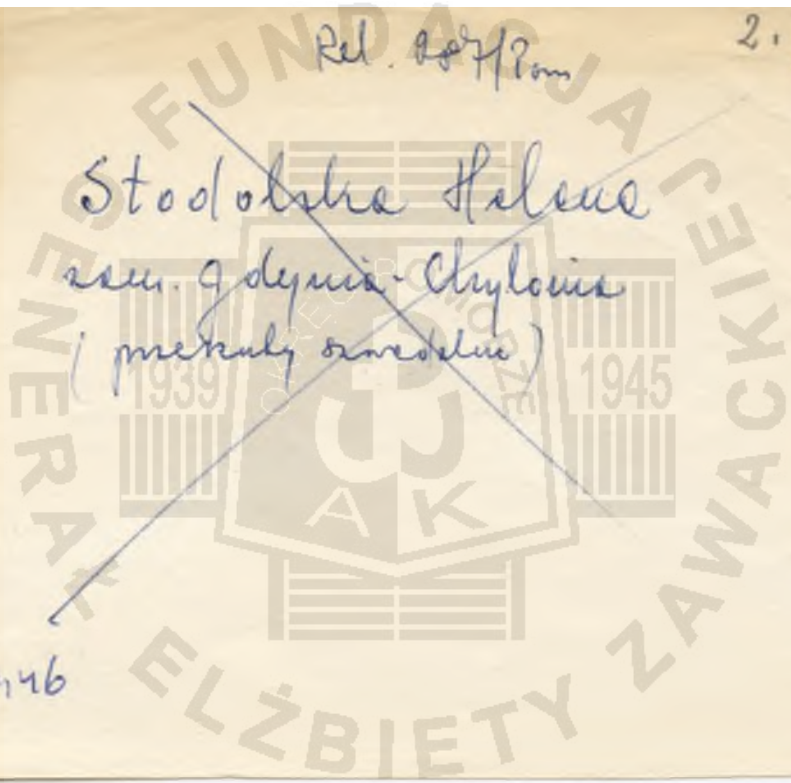 2.
Rel. 287/Pom
Stodolska Helena
zam. Gdynia-Chylonia
(przerzuty szwedzkie)
146
FUNDACJA GENERAŁ ELŻBIETY ZAWACKIEJ
OKRĘG POMORZE
1939 1945
AK